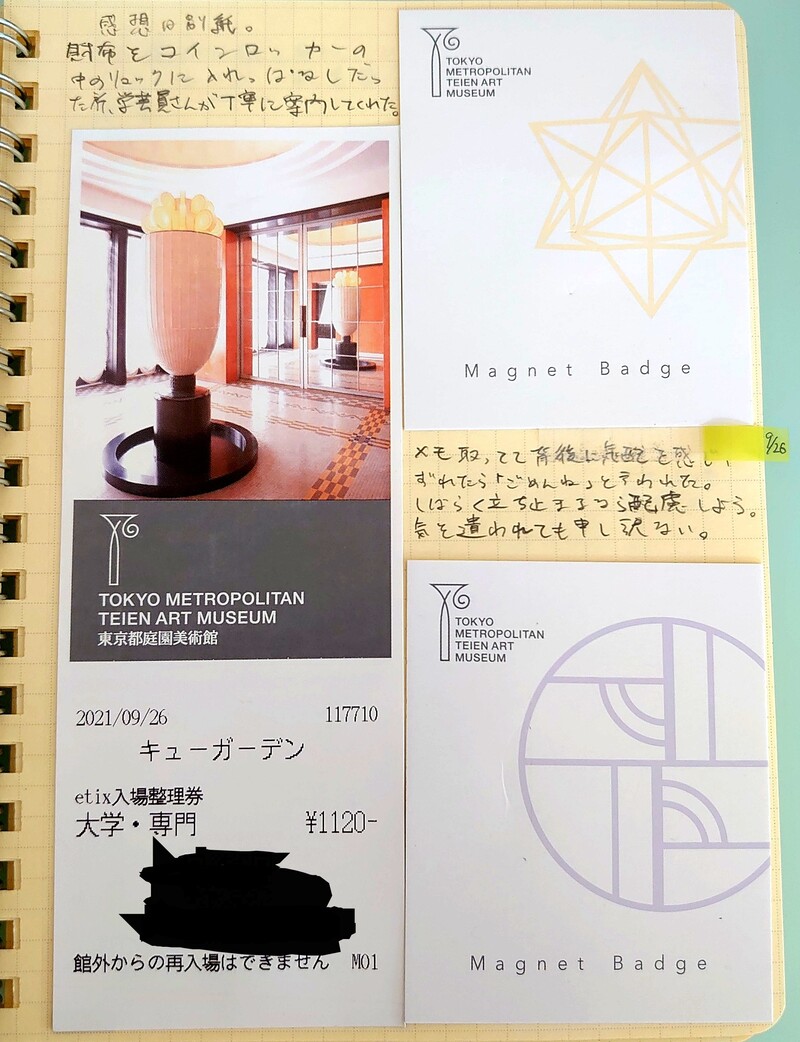 感想は別紙。
財布をコインロッカーの
中のリュックに入れっぱなしだっ
た所、学芸員さんが丁寧に案内してくれた。
TOKYO METROPOLITAN
TEIEN ART MUSEUM
東京都庭園美術館
2021/09/26 117710
キューガーデン
etix入場整理券
大学・専門 ¥1120-
館外からの再入場はできません M01
TOKYO
METROPOLITAN
TEIEN ART
MUSEUM
Magnet Badge
9/26
メモ取ってて背後に気配を感じ、
ずれたら「ごめんね」と言われた。
しばらく立ち止まるなら配慮しよう。
気を遣われても申し訳ない。
TOKYO
METROPOLITAN
TEIEN ART
MUSEUM
Magnet Badge